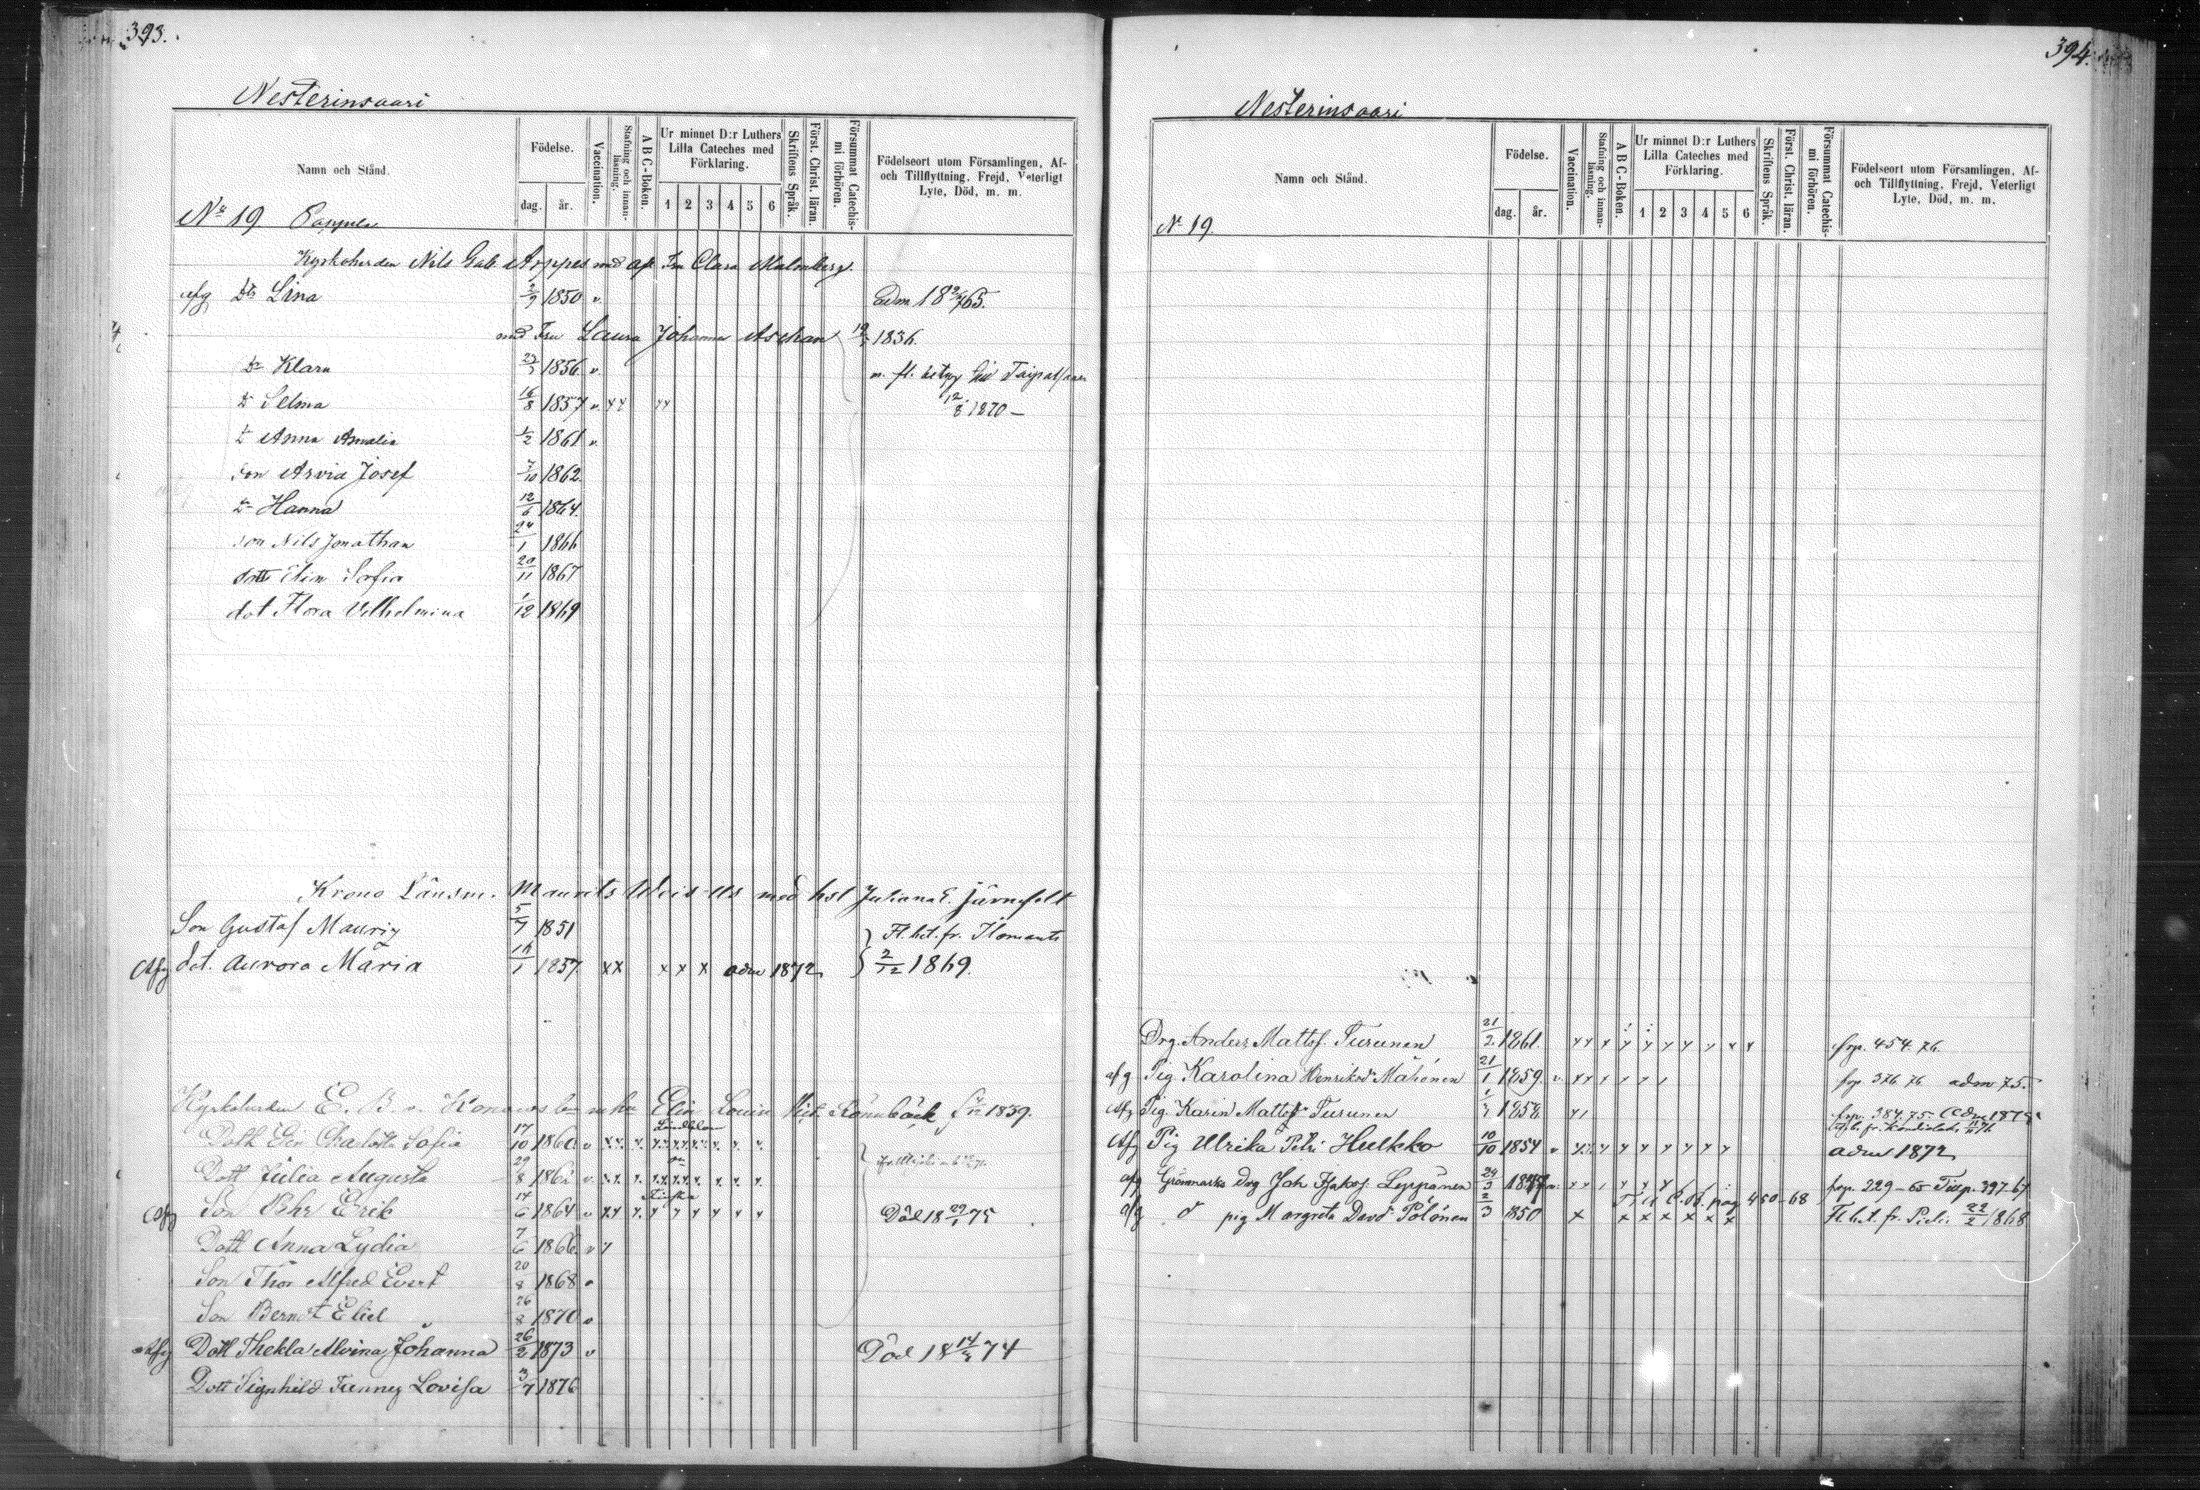 393.
Nesterinsaari
Namn och Stånd.
Födelse.
dag. år.
Vaccination.
Stafning och innan-läsning.
A B C-Boken.
Ur minnet D:r Luthers Lilla Cateches med Förklaring.
1 2 3 4 5 6
Skriftens Språk.
Först. Christ. läran.
Försummat Catechis-mi förhören.
Födelseort utom Församlingen, Af- och Tillflyttning, Frejd, Veterligt Lyte, Död, m. m.
No 19
Kyrkoherden Nils Gab. Arppes med afl. Fru Clara Malmberg.
afg Lina 1850 v adm 1865.
med Fru Laura Johanna Aschan 1836.
Klara 1856 v
Selma 16/8 1857 v xx xx 12/8 1870 –
Anna Amalia 1/2 1861 v
Son Arvid Josef 7/10 1862
Hanna 12/6 1864.
Son Nils Jonathan 24/1 1866
dott Elin Sofia 20/11 1867
dot Flora Vilhelmina 1/12 1869
Krono Länsm. Maurits med hst Juliana E. Järnefelt
Son Gustaf Mauriz 5/7 1851 Fl. bet. fr. Ilomants
Afg dot. Aurora Maria 16/1 1857 xx x x x adm 1872 2/12 1869.
Kyrkoherden E. B. Elin Rönnbäck 1839.
Dott Charlotta Sofia 17/10 1860 v
Dott Julia Augusta 29/8 1862 v
Afg Son Erik 14/6 1864 v Död 18 29/1 75
Dott Anna Lydia 7/6 1866 v
Son Thor Alfred Evert 20/8 1868 v
Son Berndt Eliel 26/8 1870 v
Afg Dott Thekla Alvina Johanna 26/2 1873 v Död 18 14/3 74
Dott Signhild Funney Lovisa 3/7 1876
394.
Nesterinsaari
Namn och Stånd.
Födelse.
dag. år.
Vaccination.
Stafning och innan-läsning.
A B C-Boken.
Ur minnet D:r Luthers Lilla Cateches med Förklaring.
1 2 3 4 5 6
Skriftens Språk.
Först. Christ. läran.
Försummat Catechis-mi förhören.
Födelseort utom Församlingen, Af- och Tillflyttning, Frejd, Veterligt Lyte, Död, m. m.
No 19.
Drg. Anders Mattss. Turunen 21/2 1861 frp. 454. 76.
afg Pig Karolina Henriksdr Mähönen 21/1 1859. frp 376 76 adm 75.
Afg Pig. Karin Mattsdr Turunen 1858 frp. 384. 75. adm 1875
Afg Pig Ulrika Petri Hulkko 10/10 1854 v adm 1872
afg Grönmarks drg Joh Isakss. Leppänen 24/3 1847 frp. 229–65 Tisp. 397–67
T. ll C. B. pag 450–68
afg d pig Margreta Davdr Pölönen 2/3 1850 x x x x x x x Fl. bet. fr. Pielis 22/2 1868